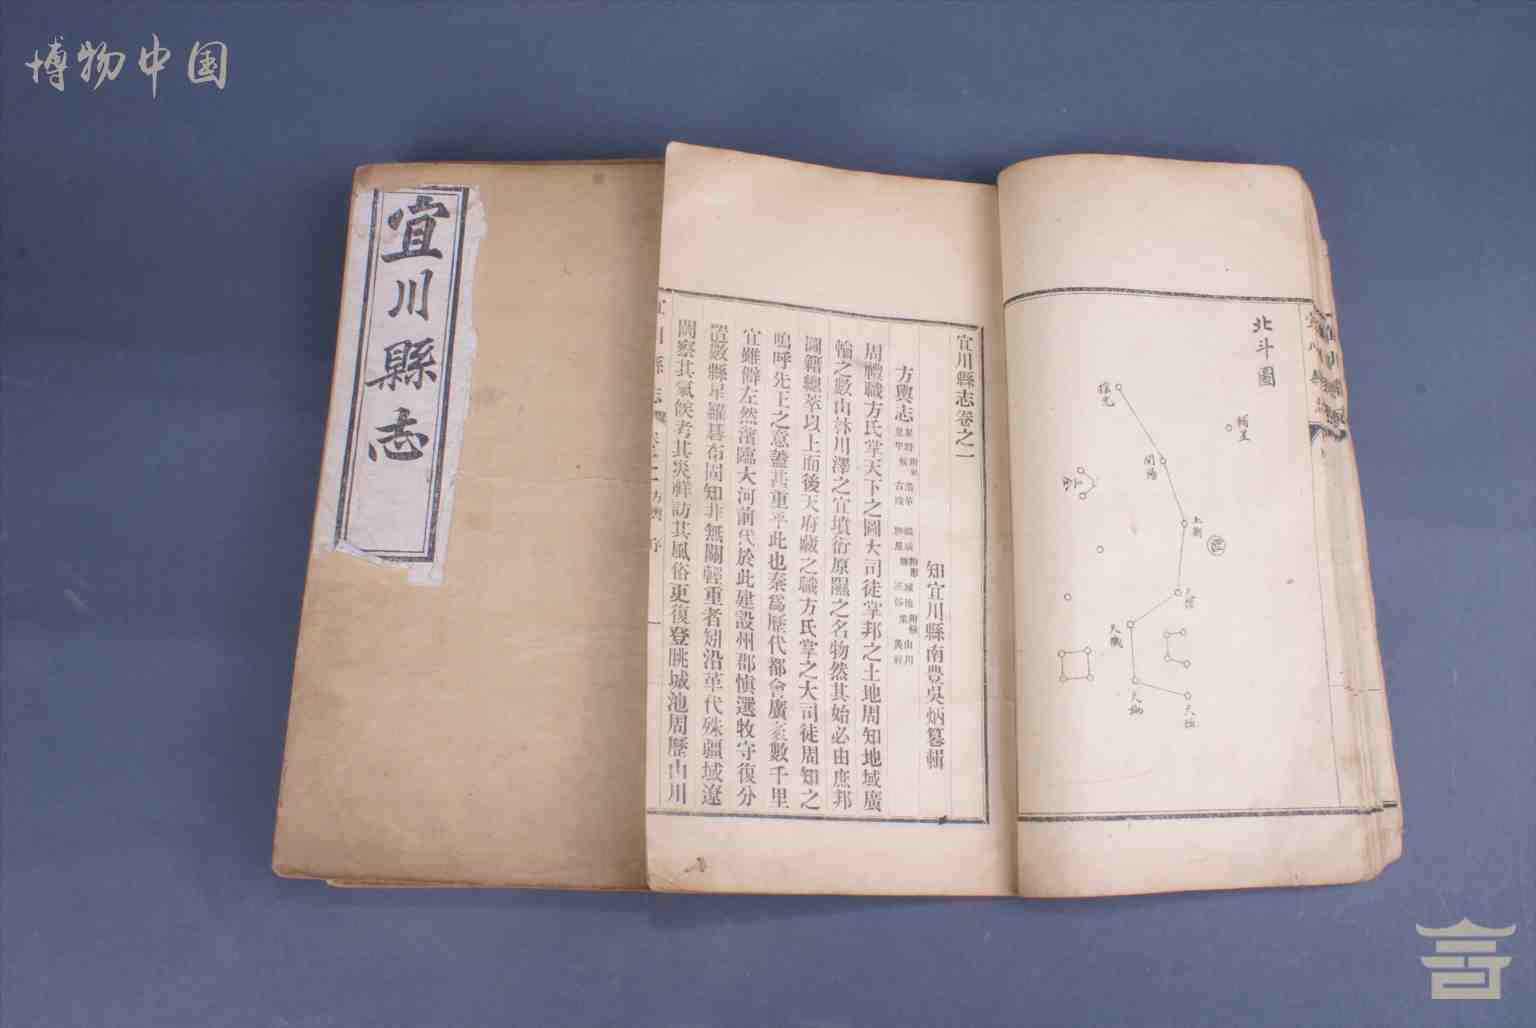 博物中国
宜川縣志
北斗圖
搖光
輔星
開陽
玉衡
天權
天璣
天璇
天樞
宜川縣志卷之一
知宜川縣南豐吳炳纂輯
方輿志
周禮職方氏掌天下之圖大司徒掌邦之土地周知地域廣
輪之數山林川澤之宜墳衍原隰之名物然其始必由庶邦
圖籍總萃以上而後天府藏之職方氏掌之大司徒周知之
嗚呼先王之意蓋其重乎此也秦爲歷代都會廣袤數千里
宜雖僻左然濱臨大河前代於此建設州郡慎選牧守復分
置數縣星羅碁布固知非無關輕重者矧沿革代殊疆域遼
闊察其氣候考其災祥訪其風俗更復登眺城池周歷山川
宜川縣志